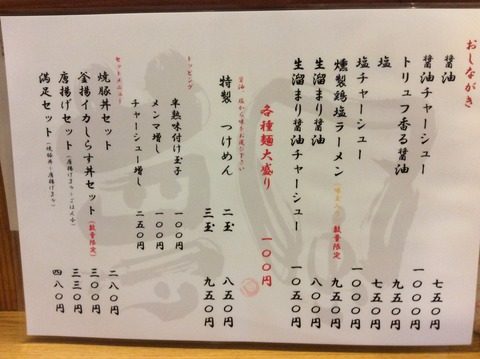 おしながき
醤油 七五〇円
醤油チャーシュー 一〇〇〇円
トリュフ香る醤油 九五〇円
塩 七五〇円
塩チャーシュー 一〇〇〇円
燻製鶏塩ラーメン（数量限定） 九五〇円
生溜まり醤油 八〇〇円
生溜まり醤油チャーシュー 一〇五〇円
各種麺大盛り 一〇〇円
醤油、塩から味をお選び下さい
特製 つけめん 二玉 八五〇円
三玉 九五〇円
トッピング
半熟味付け玉子 一〇〇円
メンマ増し 一〇〇円
チャーシュー増し 二五〇円
セットメニュー
焼豚丼セット 二八〇円
釜揚イカしらす丼セット（数量限定） 三〇〇円
唐揚げセット（唐揚げ3ケ・ごはん小） 三三〇円
満足セット（焼豚丼・唐揚げ3ケ） 四八〇円